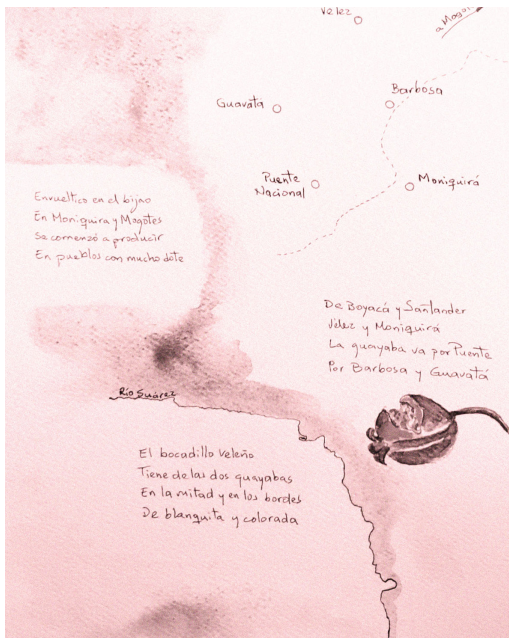 Vélez
a Mogotes
Barbosa
Guavatá
Puente
Nacional
Moniquirá
Envueltico en el bijao
En Moniquira y Mogotes
Se comenzó a producir
En pueblos con mucho dote
De Boyacá y Santander
Vélez y Moniquirá
La guayaba va por Puente
Por Barbosa y Guavatá
Río Suárez
El bocadillo veleño
Tiene de las dos guayabas
En la mitad y en los bordes
De blanquita y colorada